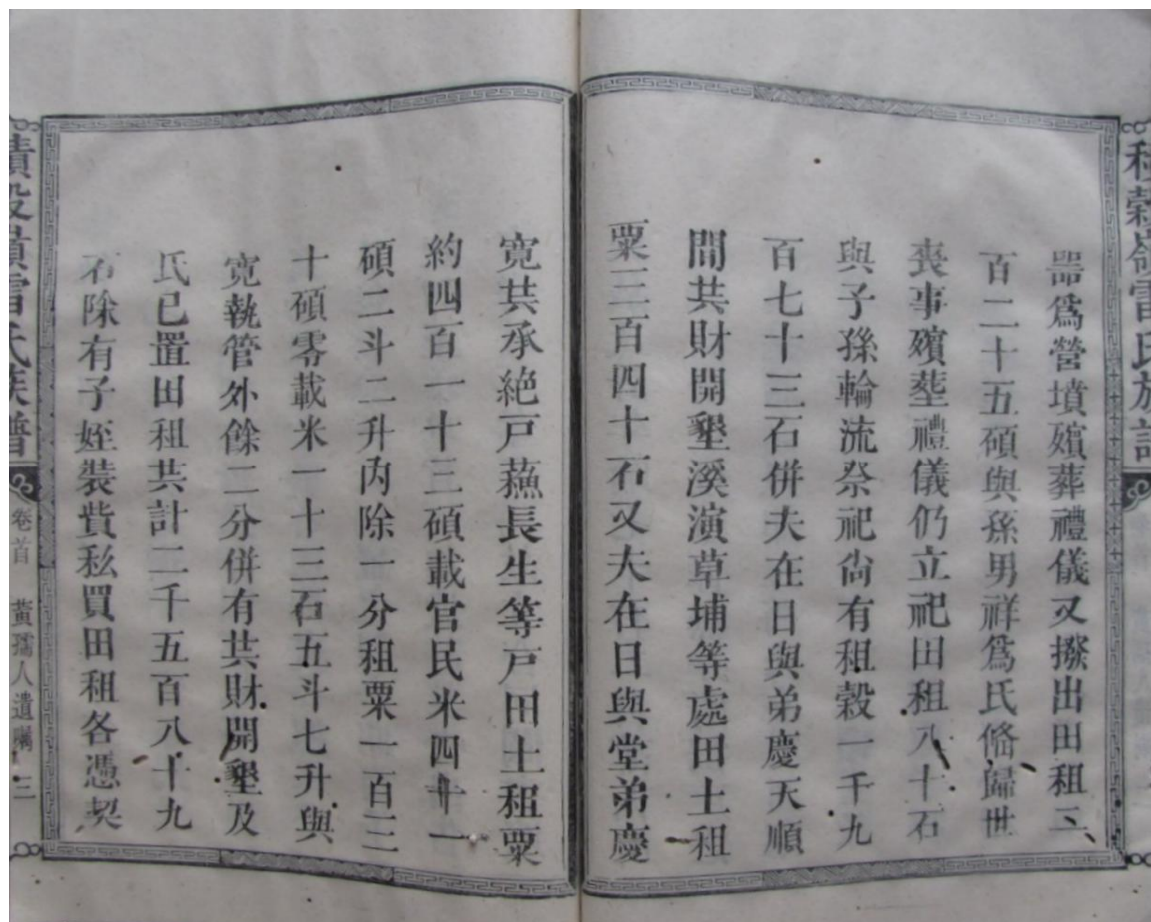 積穀嶺雷氏族譜
器爲營墳殯葬禮儀又撥出田租三
百二十五碩與孫男祥爲氏俻歸世
喪事殯塟禮儀仍立祀田租八十石
與子孫輪流祭祀尙有租穀一千九
百七十三石併夫在日與弟慶天順
間共財開墾溪演草埔等處田土租
粟三百四十石又夫在日與堂弟慶
寛共承絶戸蘓長生等戸田土租粟
約四百一十三碩載官民米四十一
碩二斗二升內除一分租粟一百三
十碩零載米一十三石五斗七升與
寛執管外餘二分併有共財開墾及
氏已置田租共計二千五百八十九
石除有子姪裝貲私買田租各憑契
積穀嶺雷氏族譜 卷首 黃孺人遺囑 三